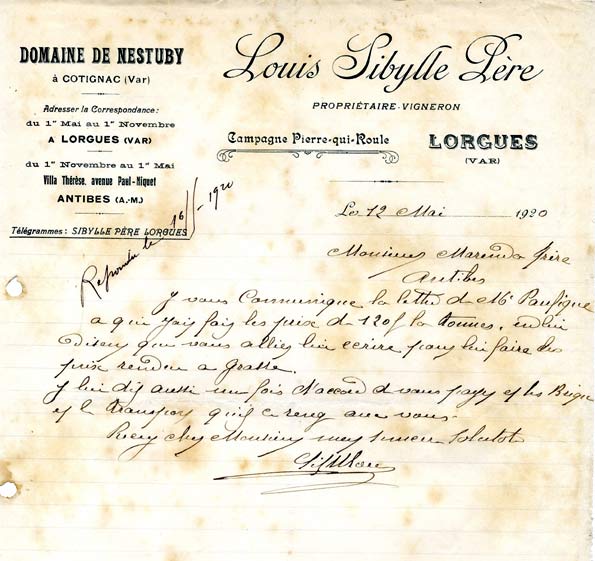 DOMAINE DE NESTUBY
à COTIGNAC (Var)
Adresser la Correspondance:
du 1er Mai au 1er Novembre
A LORGUES (VAR)
du 1er Novembre au 1er Mai
Villa Thérèse, avenue Paul-Niquet
ANTIBES (A.-M.)
Télégrammes: SIBYLLE PÈRE LORGUES
Louis Sibylle Père
PROPRIÉTAIRE-VIGNERON
Campagne Pierre-qui-Roule
LORGUES
(VAR)
Le 12 Mai 1920
Répondu le 16/5-1920
Monsieur frère
Antibes
Je vous Communique la lettre de Mr
a qui j'ais fais les prix de 120f la tonnes, en lui
disen que vous alliez lui ecrire pour lui faire les
prix rendu a Grasse.
Je lui dit aussi une fois d'accord de vous payer les Briques
et le transpor qu'il
Recevez cher Monsieur mes